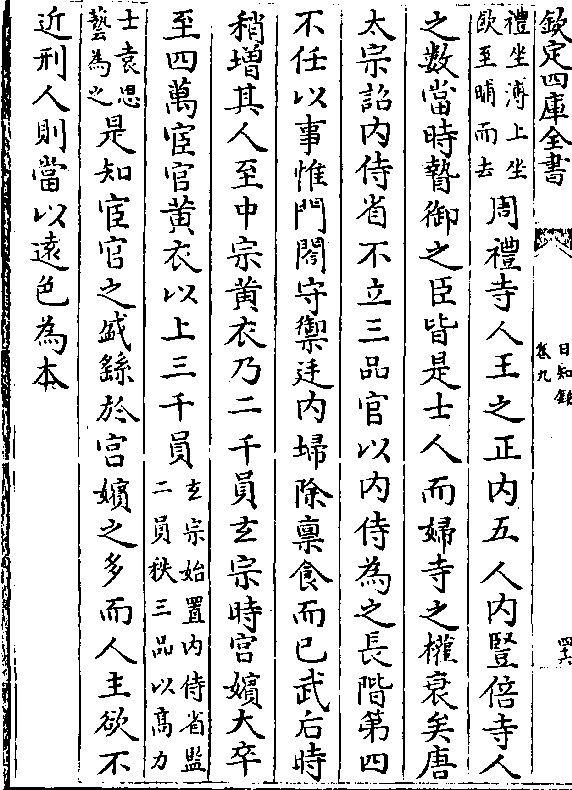 欽定四庫全書
日知錄
卷九
四六
禮坐溥上坐
歐至晡而去
周禮寺人王之正内五人内豎倍寺人
之數當時䙝御之臣皆是士人而婦寺之權衰矣唐
太宗詔内侍省不立三品官以内侍為之長階第四
不任以事惟門閤守禦廷内埽除禀食而已武后時
稍增其人至中宗黄衣乃二千員玄宗時宫嬪大率
至四萬宦官黄衣以上三千員
玄宗始置内侍省監
二員秩三品以髙力
士袁思
藝為之
是知宦官之盛繇於宫嬪之多而人主欲不
近刑人則當以遠色為本